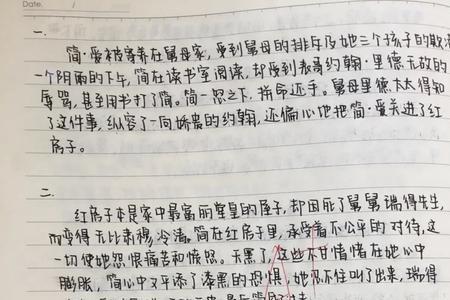 Date. /
一.
简·爱被寄养在舅母家,受到舅母的排斥及她三个孩子的欺
一个阴雨的下午,简在读书室阅读,却受到表哥约翰·里德无故的
辱骂,甚至用书打了简。简一怒之下,拼命还手。舅母里德太太得知
了这件事,纵容了一向娇贵的约翰,还偏心地把简·爱关进了红
房子。
二.
红房子本是家中最富丽堂皇的屋子,却因死了舅舅瑞得先生,
而变得无比肃穆,冷清。简在红房子里,承受着不公平的对待,这
一切使她怨恨痛苦和愤怒。天黑了,这些不甘情绪在她心中
膨胀,简心中又平添了漆黑的恐惧,她忍不住叫了出来,瑞得